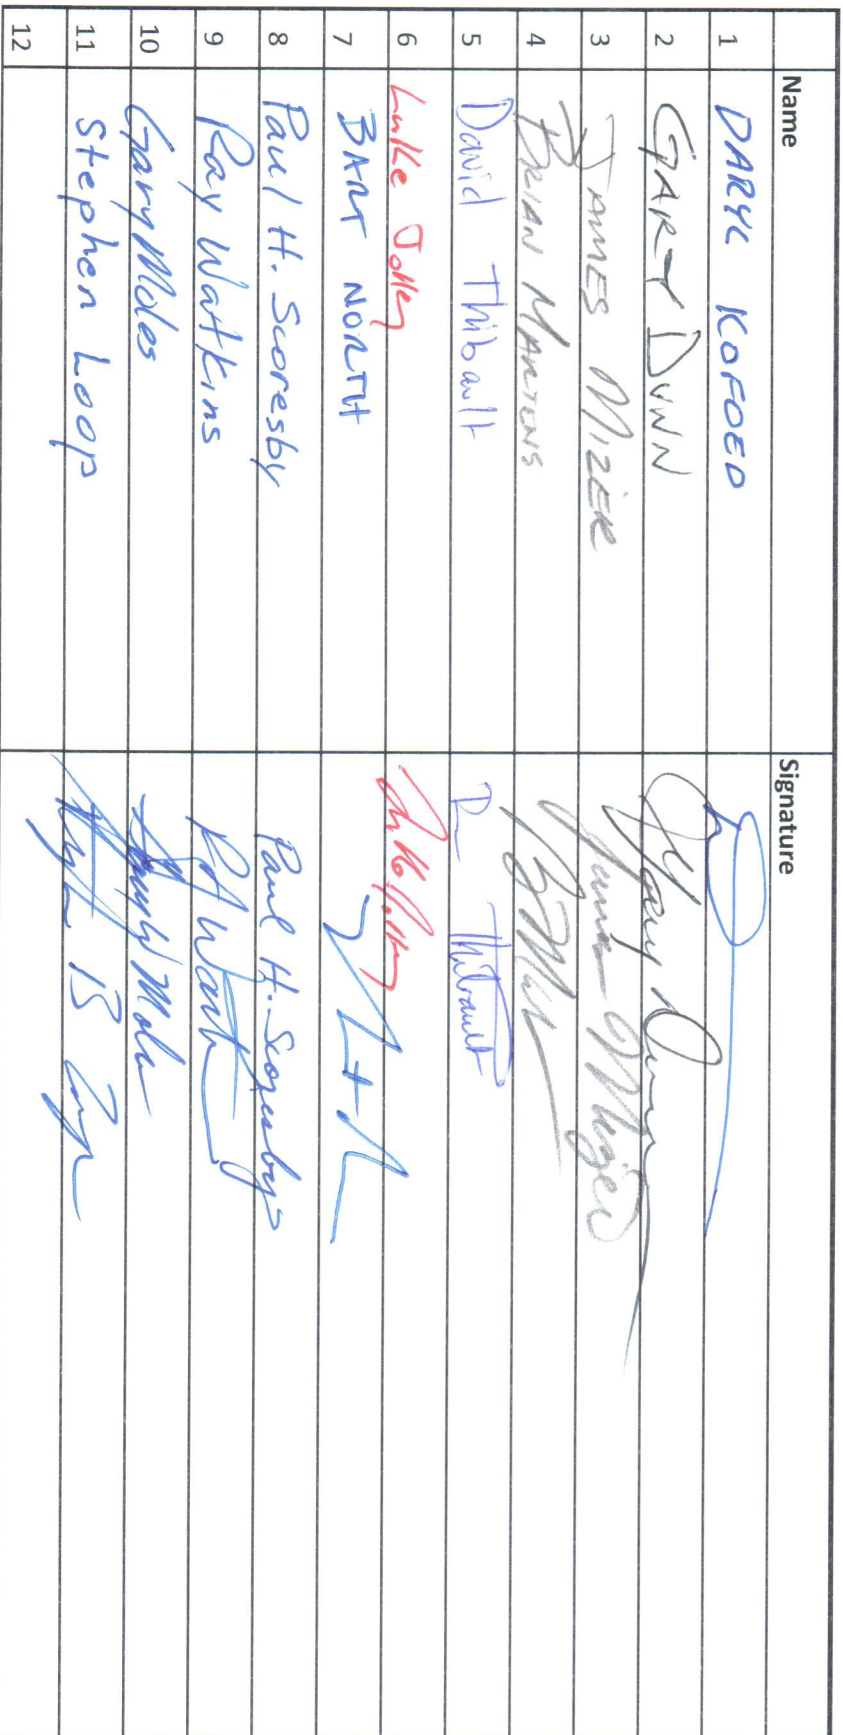 Name Signature
1 DARYL KOFOED
2 GARY DUNN Gary Dunn
3 JAMES MIZER James Mizer
4 BRIAN MARTENS
5 David Thibault D Thibault
6 Luke Jolley
7 BART NORTH
8 Paul H. Scoresby Paul H. Scoresby
9 Ray Watkins
10 Gary Moles
11 Stephen Loop
12